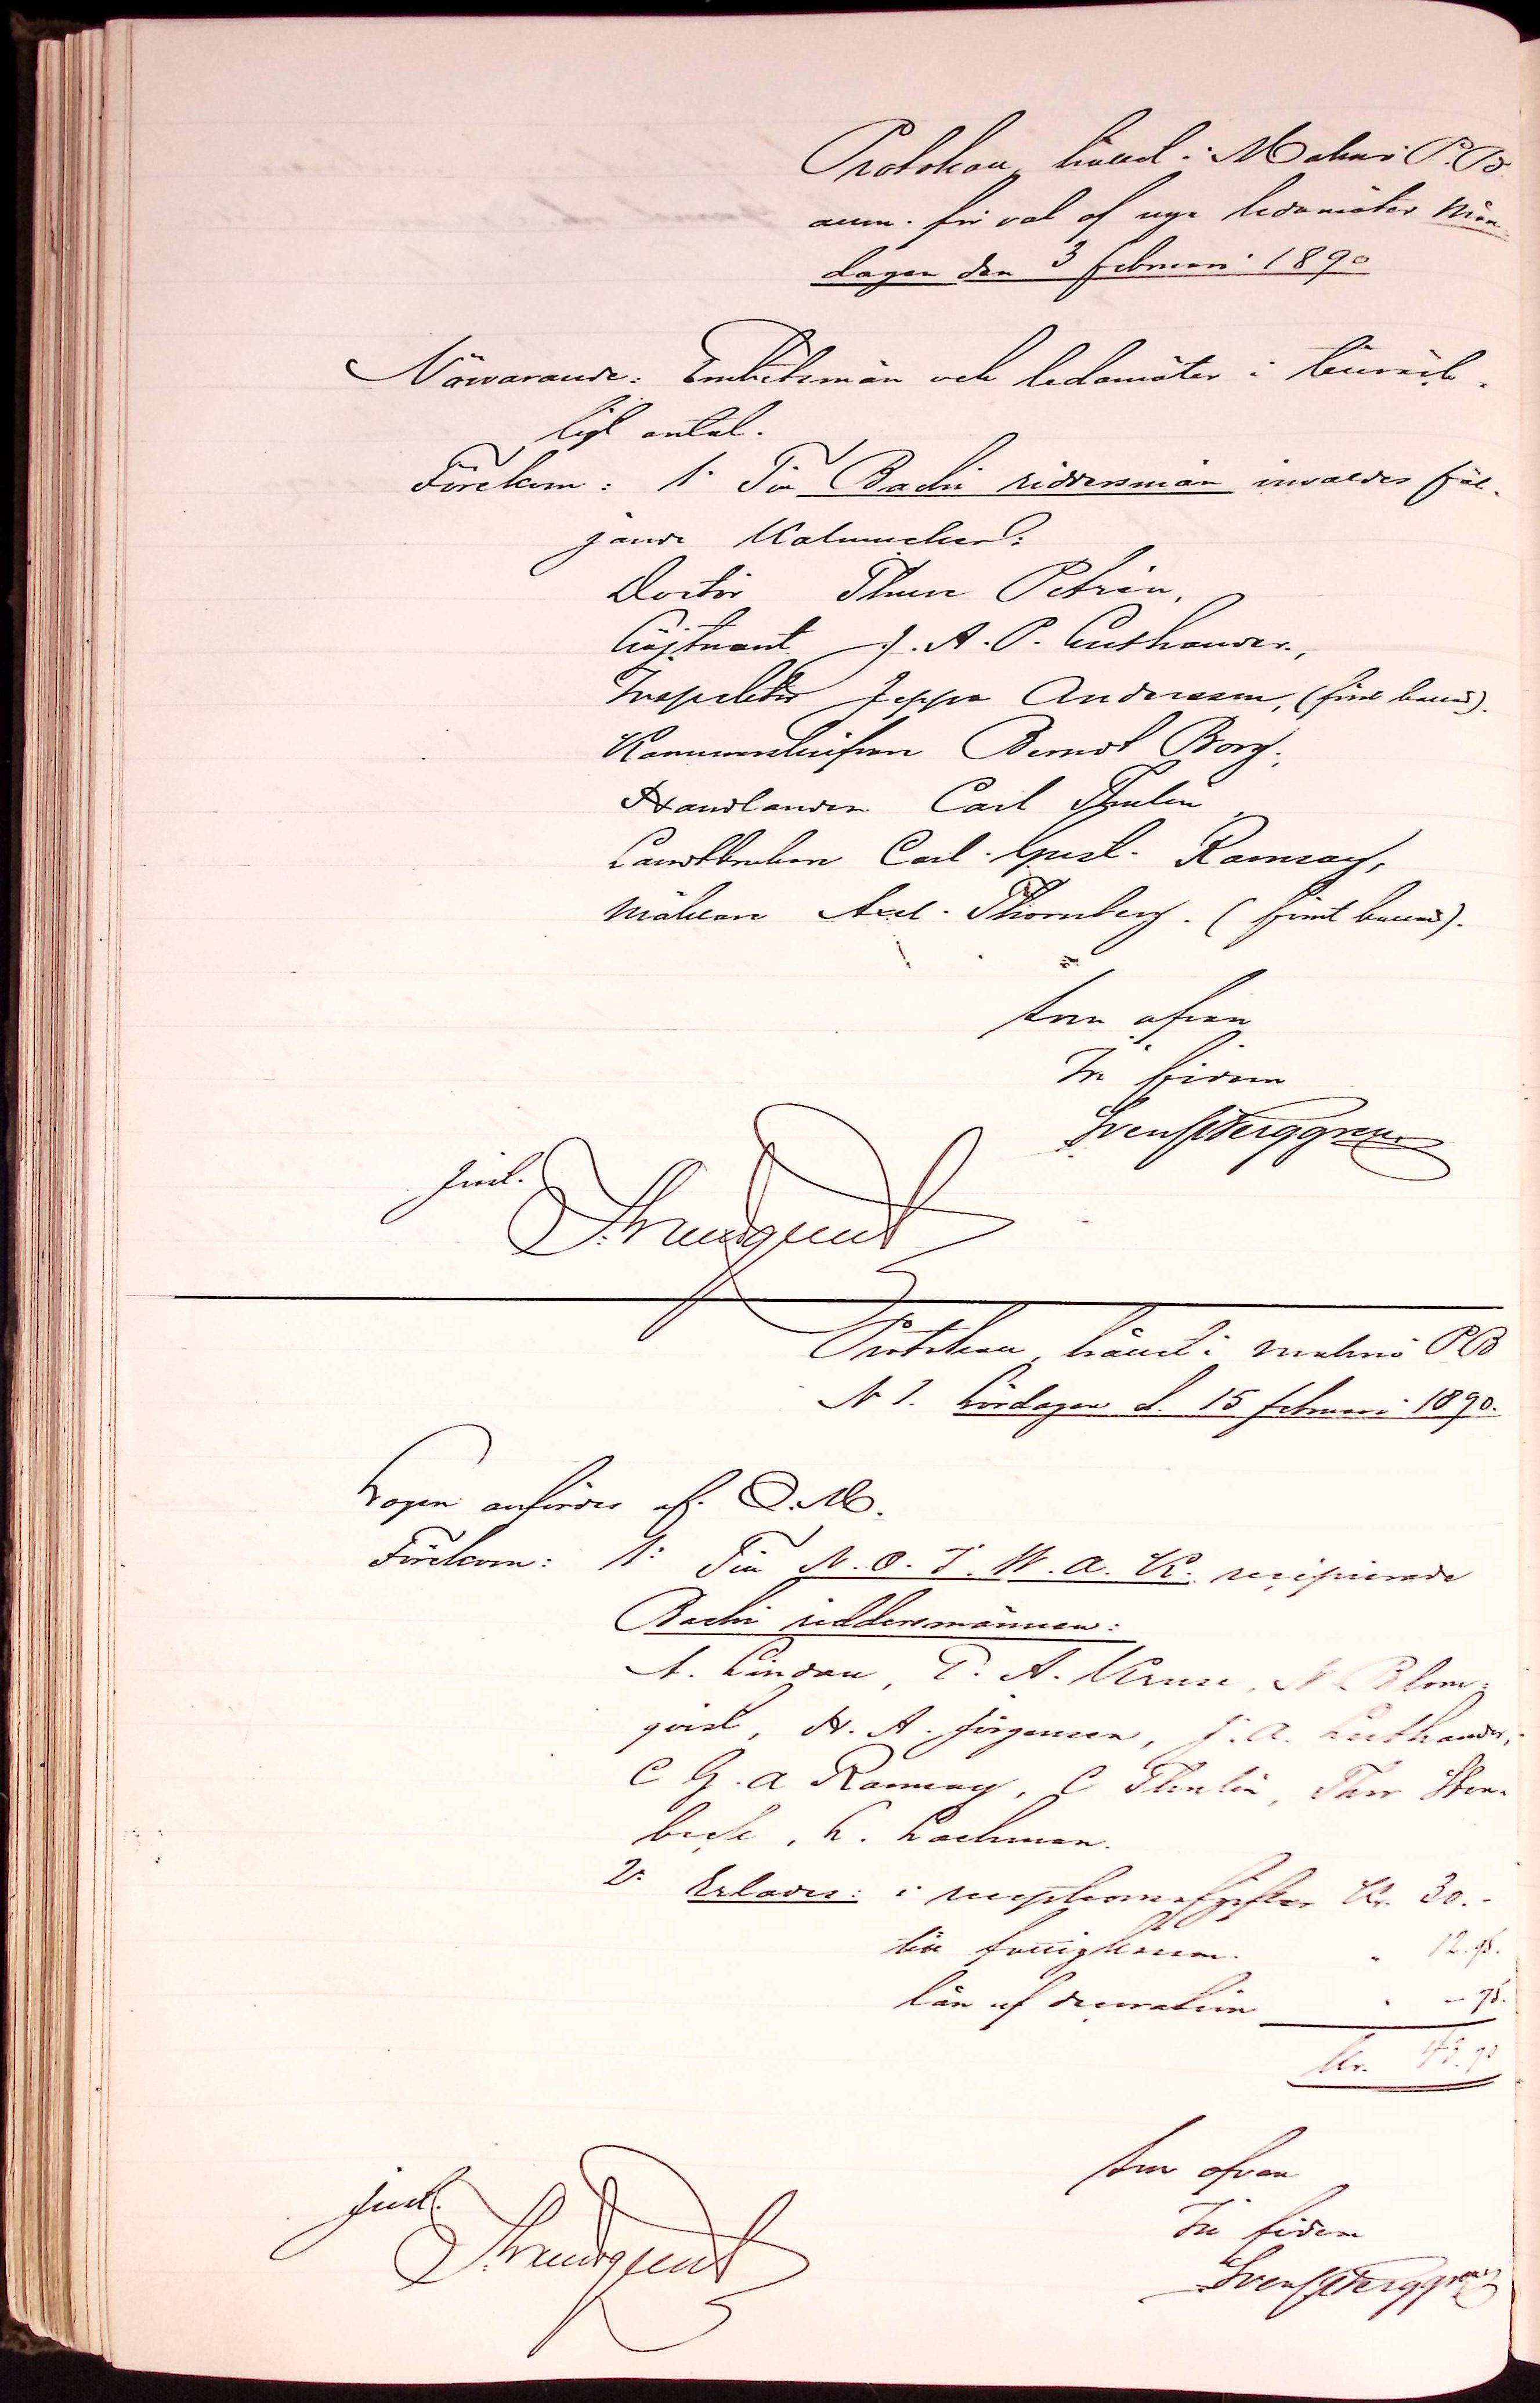 Protokoll, hållet i Malmö P.B.
anm. för val af nya ledamöter Mån-
dagen den 3 februari 1890
Närvarande: Embetsmän och ledamöter i tillräck-
ligt antal.
Förekom: 1º Till Bachi riddersmän invaldes föl-
jande Kalmucker:
Doctor Thure Petrén,
Löjtnant J. A. P. Luthander,
Inspektor Jeppa Andersson, (fint band).
Kammarskrifvare Berndt Borg,
Handlanden Carl Thulin,
Landtbrukare Carl Gust. Ramsay,
Mäklare Axel Thornberg. (fint band).
Som ofvan
In fidem
Sven Berggren
Just.
Strandquist
Protokoll, hållet i Malmö P B
N 1. Lördagen d. 15 februari 1890.
Logen anfördes af O.M.
Förekom: 1º Till N. O. J. W. A. K. recipierade
Bachi riddersmännen:
A. Lindau, P. A. Kruse, N. Blom-
qvist, H. A. Jörgensen, J. A. Luthander,
C G. A Ramsay, C Thulin, Thor Sten-
beck, L. Lachman.
2º Erlades: i receptionsafgifter Kr. 30.-
till fattigkassan " 12.95.
lån af decoration " - 95.
Kr. 43.90
Som ofvan
In fidem
Sven Berggren
Just.
Strandquist